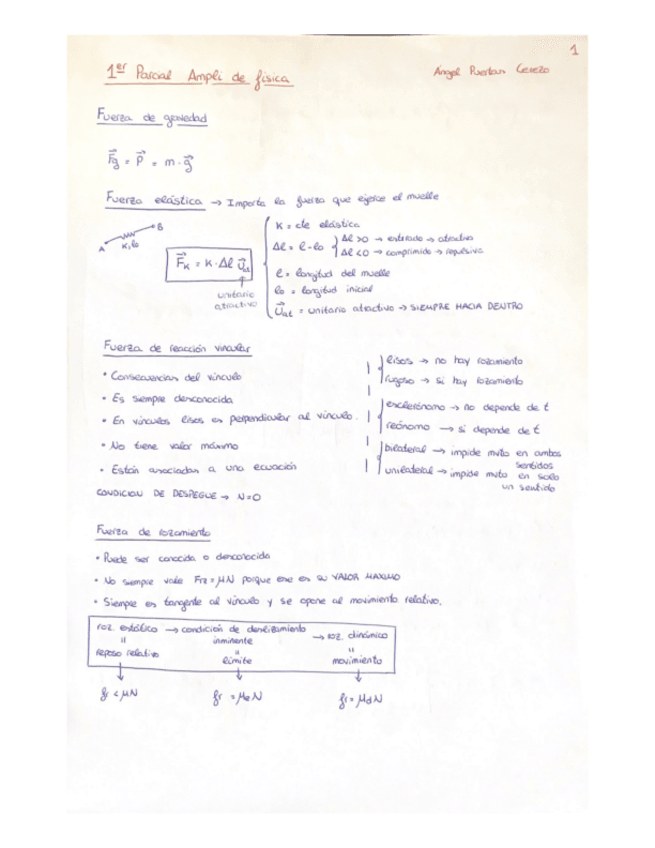 1
1er Parcial Ampli de física
Ángel Puertas Cerezo
Fuerza de gravedad
F⃗g = P⃗ = m · g⃗
Fuerza elástica → Importa la fuerza que ejerce el muelle
A B K, lo
F⃗K = K · Δl u⃗at
unitario
atractivo
K = cte elástica
Δl = l - lo
Δl >0 → estirado → atractiva
Δl <0 → comprimido → repulsiva
l = longitud del muelle
lo = longitud inicial
u⃗at = unitario atractivo → SIEMPRE HACIA DENTRO
Fuerza de reacción vincular
• Consecuencias del vínculo
• Es siempre desconocida
• En vínculos lisos es perpendicular al vínculo.
• No tiene valor máximo
• Están asociadas a una ecuación
CONDICION DE DESPEGUE → N=0
lisos → no hay rozamiento
rugoso → si hay rozamiento
esclerónomo → no depende de t
reónomo → si depende de t
bilateral → impide mvto en ambos
sentidos
unilateral → impide mvto en solo
un sentido
Fuerza de rozamiento
• Puede ser conocida o desconocida
• No siempre vale Frz = μN porque ese es su VALOR MAXIMO
• Siempre es tangente al vínculo y se opone al movimiento relativo.
roz. estático → condición de deslizamiento → roz. dinámico
inminente
=
reposo relativo
=
límite
=
movimiento
fr < μN
fr = μeN
fr = μdN